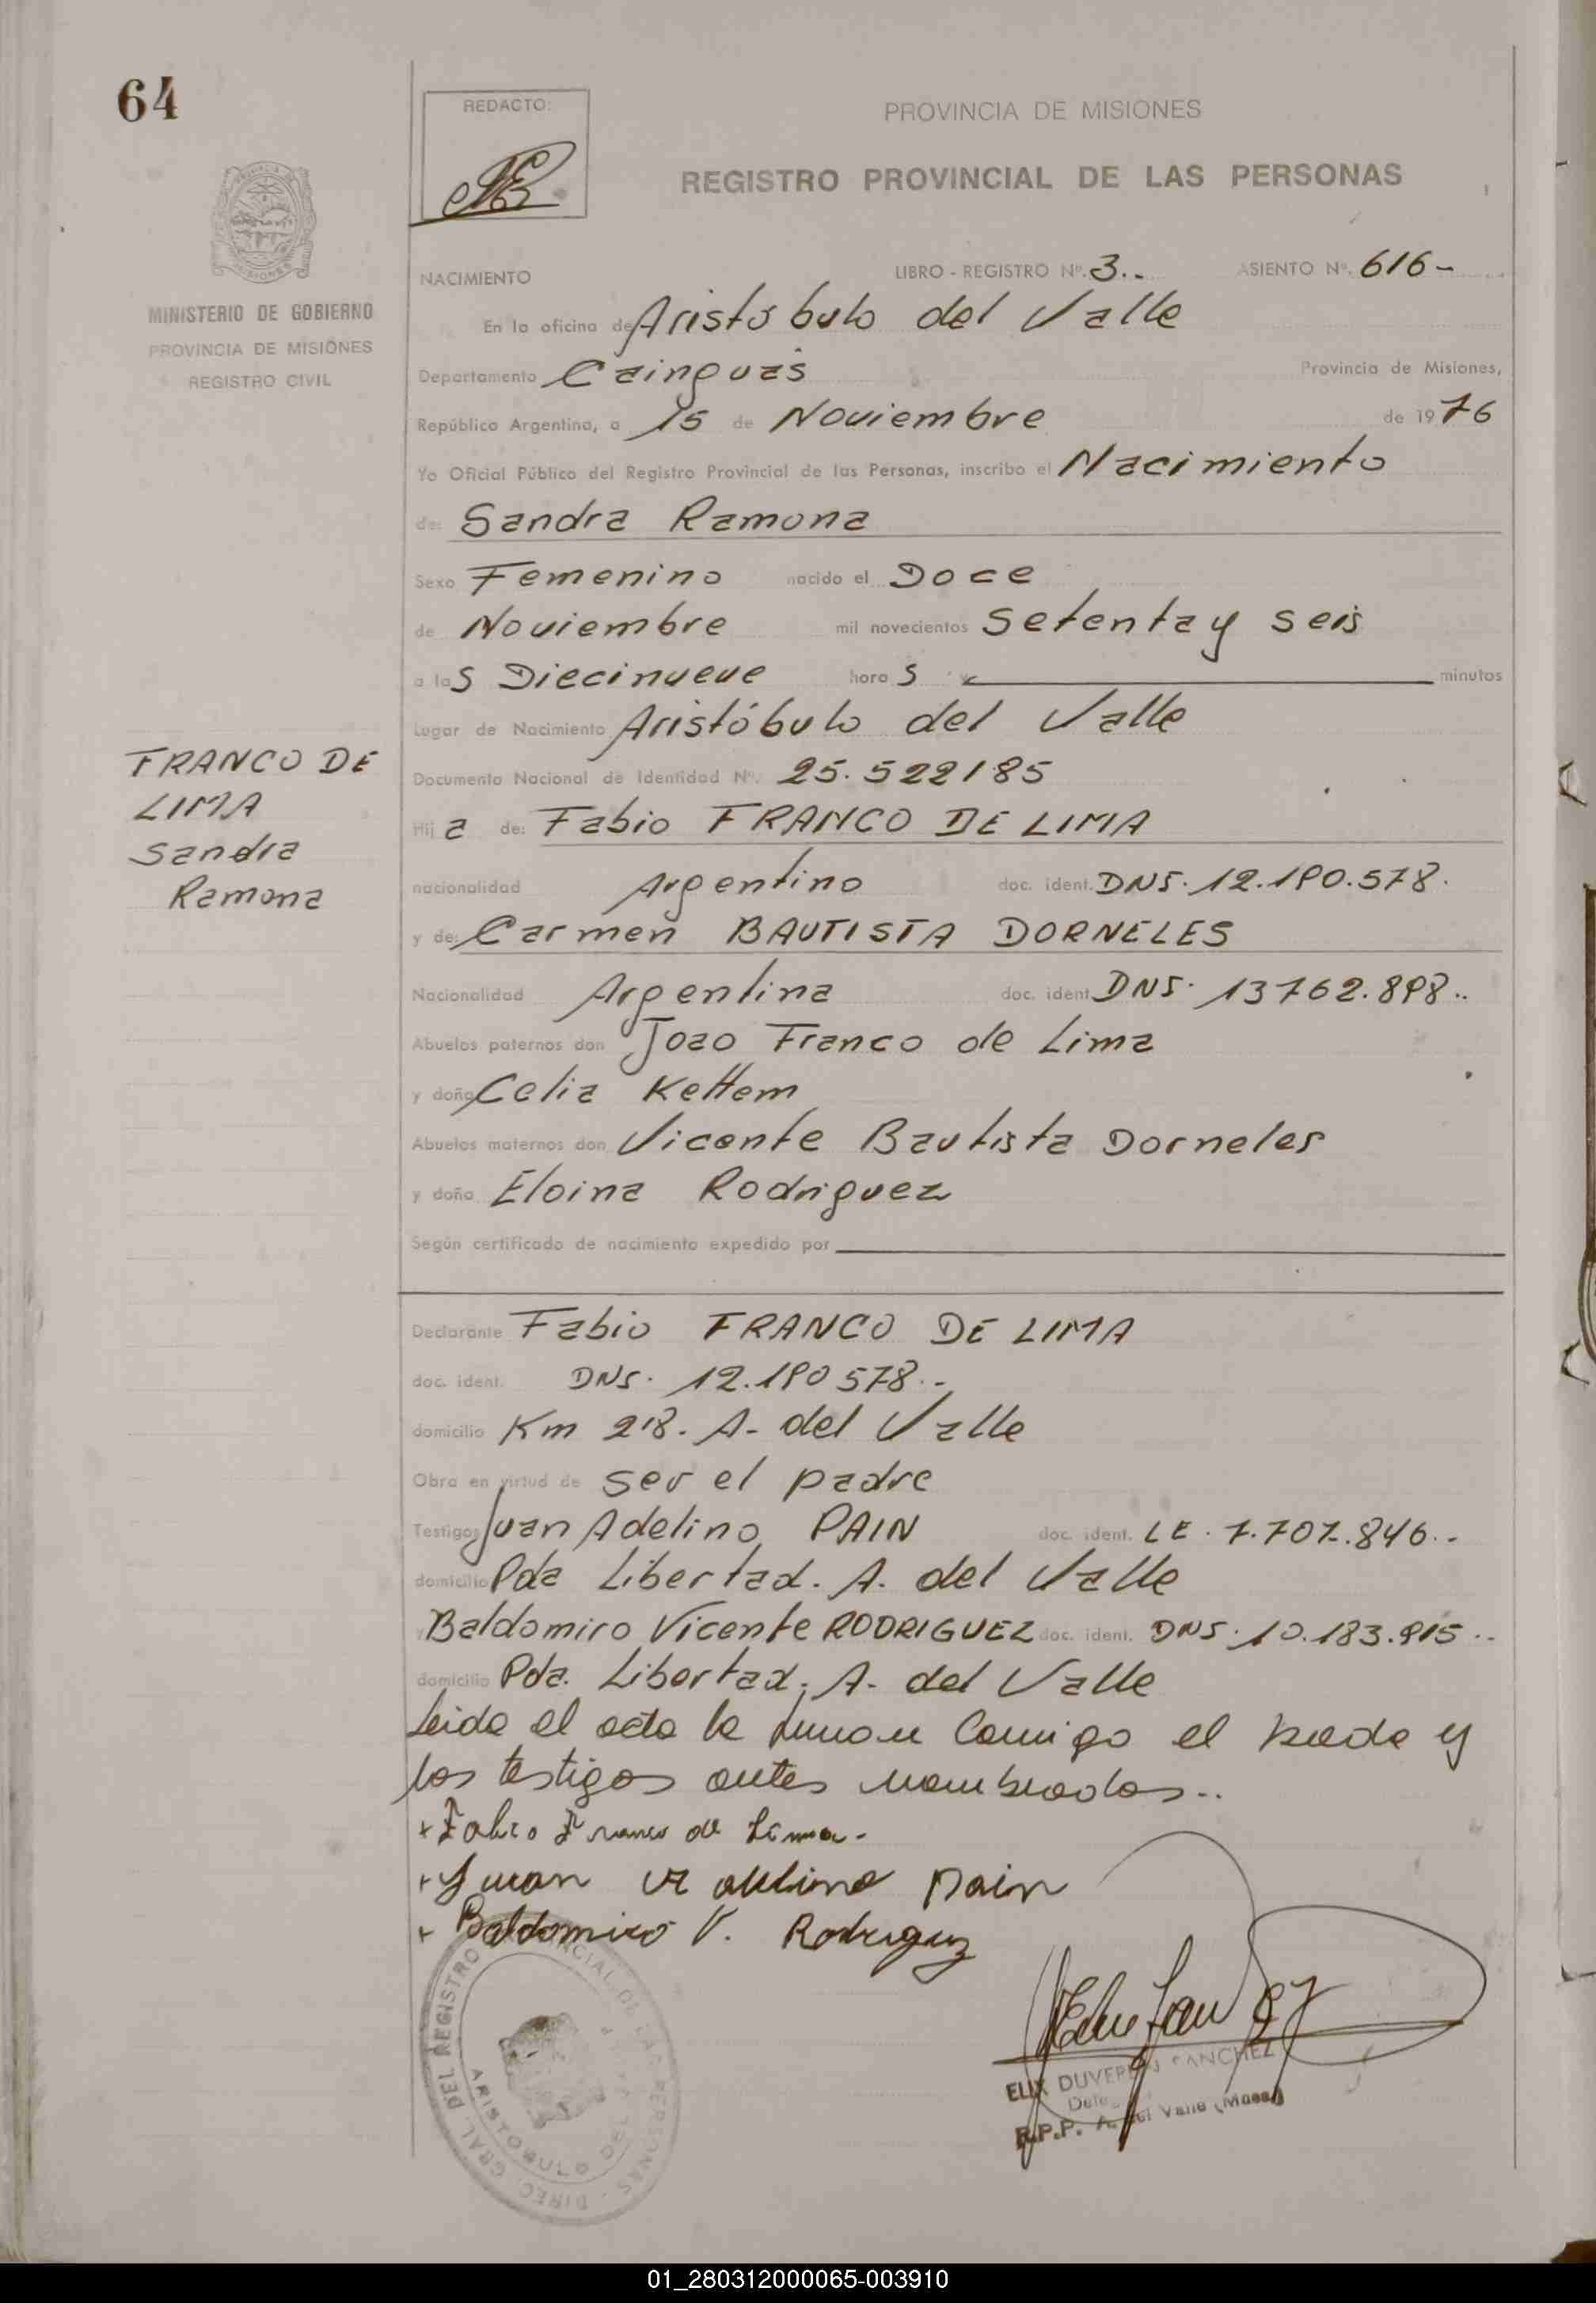 64
REDACTO:
PROVINCIA DE MISIONES
REGISTRO PROVINCIAL DE LAS PERSONAS
MINISTERIO DE GOBIERNO
PROVINCIA DE MISIONES
REGISTRO CIVIL
NACIMIENTO LIBRO - REGISTRO Nº. 3.- ASIENTO Nº. 616-
En la oficina de Aristóbulo del Valle
Departamento Cainguás Provincia de Misiones,
República Argentina, a 15 de Noviembre de 1976
Yo Oficial Público del Registro Provincial de las Personas, inscribo el Nacimiento
de: Sandra Ramona
Sexo Femenino nacido el Doce
de Noviembre mil novecientos setenta y seis
a las Diecinueve horas y minutos
Lugar de Nacimiento Aristóbulo del Valle
Documento Nacional de Identidad Nº. 25.522185
FRANCO DE
LIMA
Sandra
Ramona
Hija de: Fabio FRANCO DE LIMA
nacionalidad Argentino doc. ident. DNS. 12.190.578.
y de: Carmen BAUTISTA DORNELES
Nacionalidad Argentina doc. ident. DNS. 13762.898..
Abuelos paternos don Joao Franco de Lima
y doña Celia Kettem
Abuelos maternos don Vicente Bautista Dorneles
y doña Eloina Rodriguez
Según certificado de nacimiento expedido por
Declarante Fabio FRANCO DE LIMA
doc. ident. DNS. 12.190578.-
domicilio Km 218. A. del Valle
Obra en virtud de ser el padre
Testigos Juan Adelino PAIN doc. ident. LE. 7.707.846.-
domicilio Pda Libertad. A. del Valle
y Baldomiro Vicente RODRIGUEZ doc. ident. DNS. 10.183.915..
domicilio Pda. Libertad. A. del Valle
Leida el acta la firman conmigo el padre y
los testigos antes nombrados..
+ Fabio Franco de Lima.
+ Juan Adelino Pain
+ Baldomiro V. Rodriguez
DIREC. GRAL. DEL REGISTRO PROVINCIAL DE LAS PERSONAS
ARISTOBULO DEL
ELIX DUVER SANCHEZ
R.P.P. A. del Valle (Mnes)
01_280312000065-003910